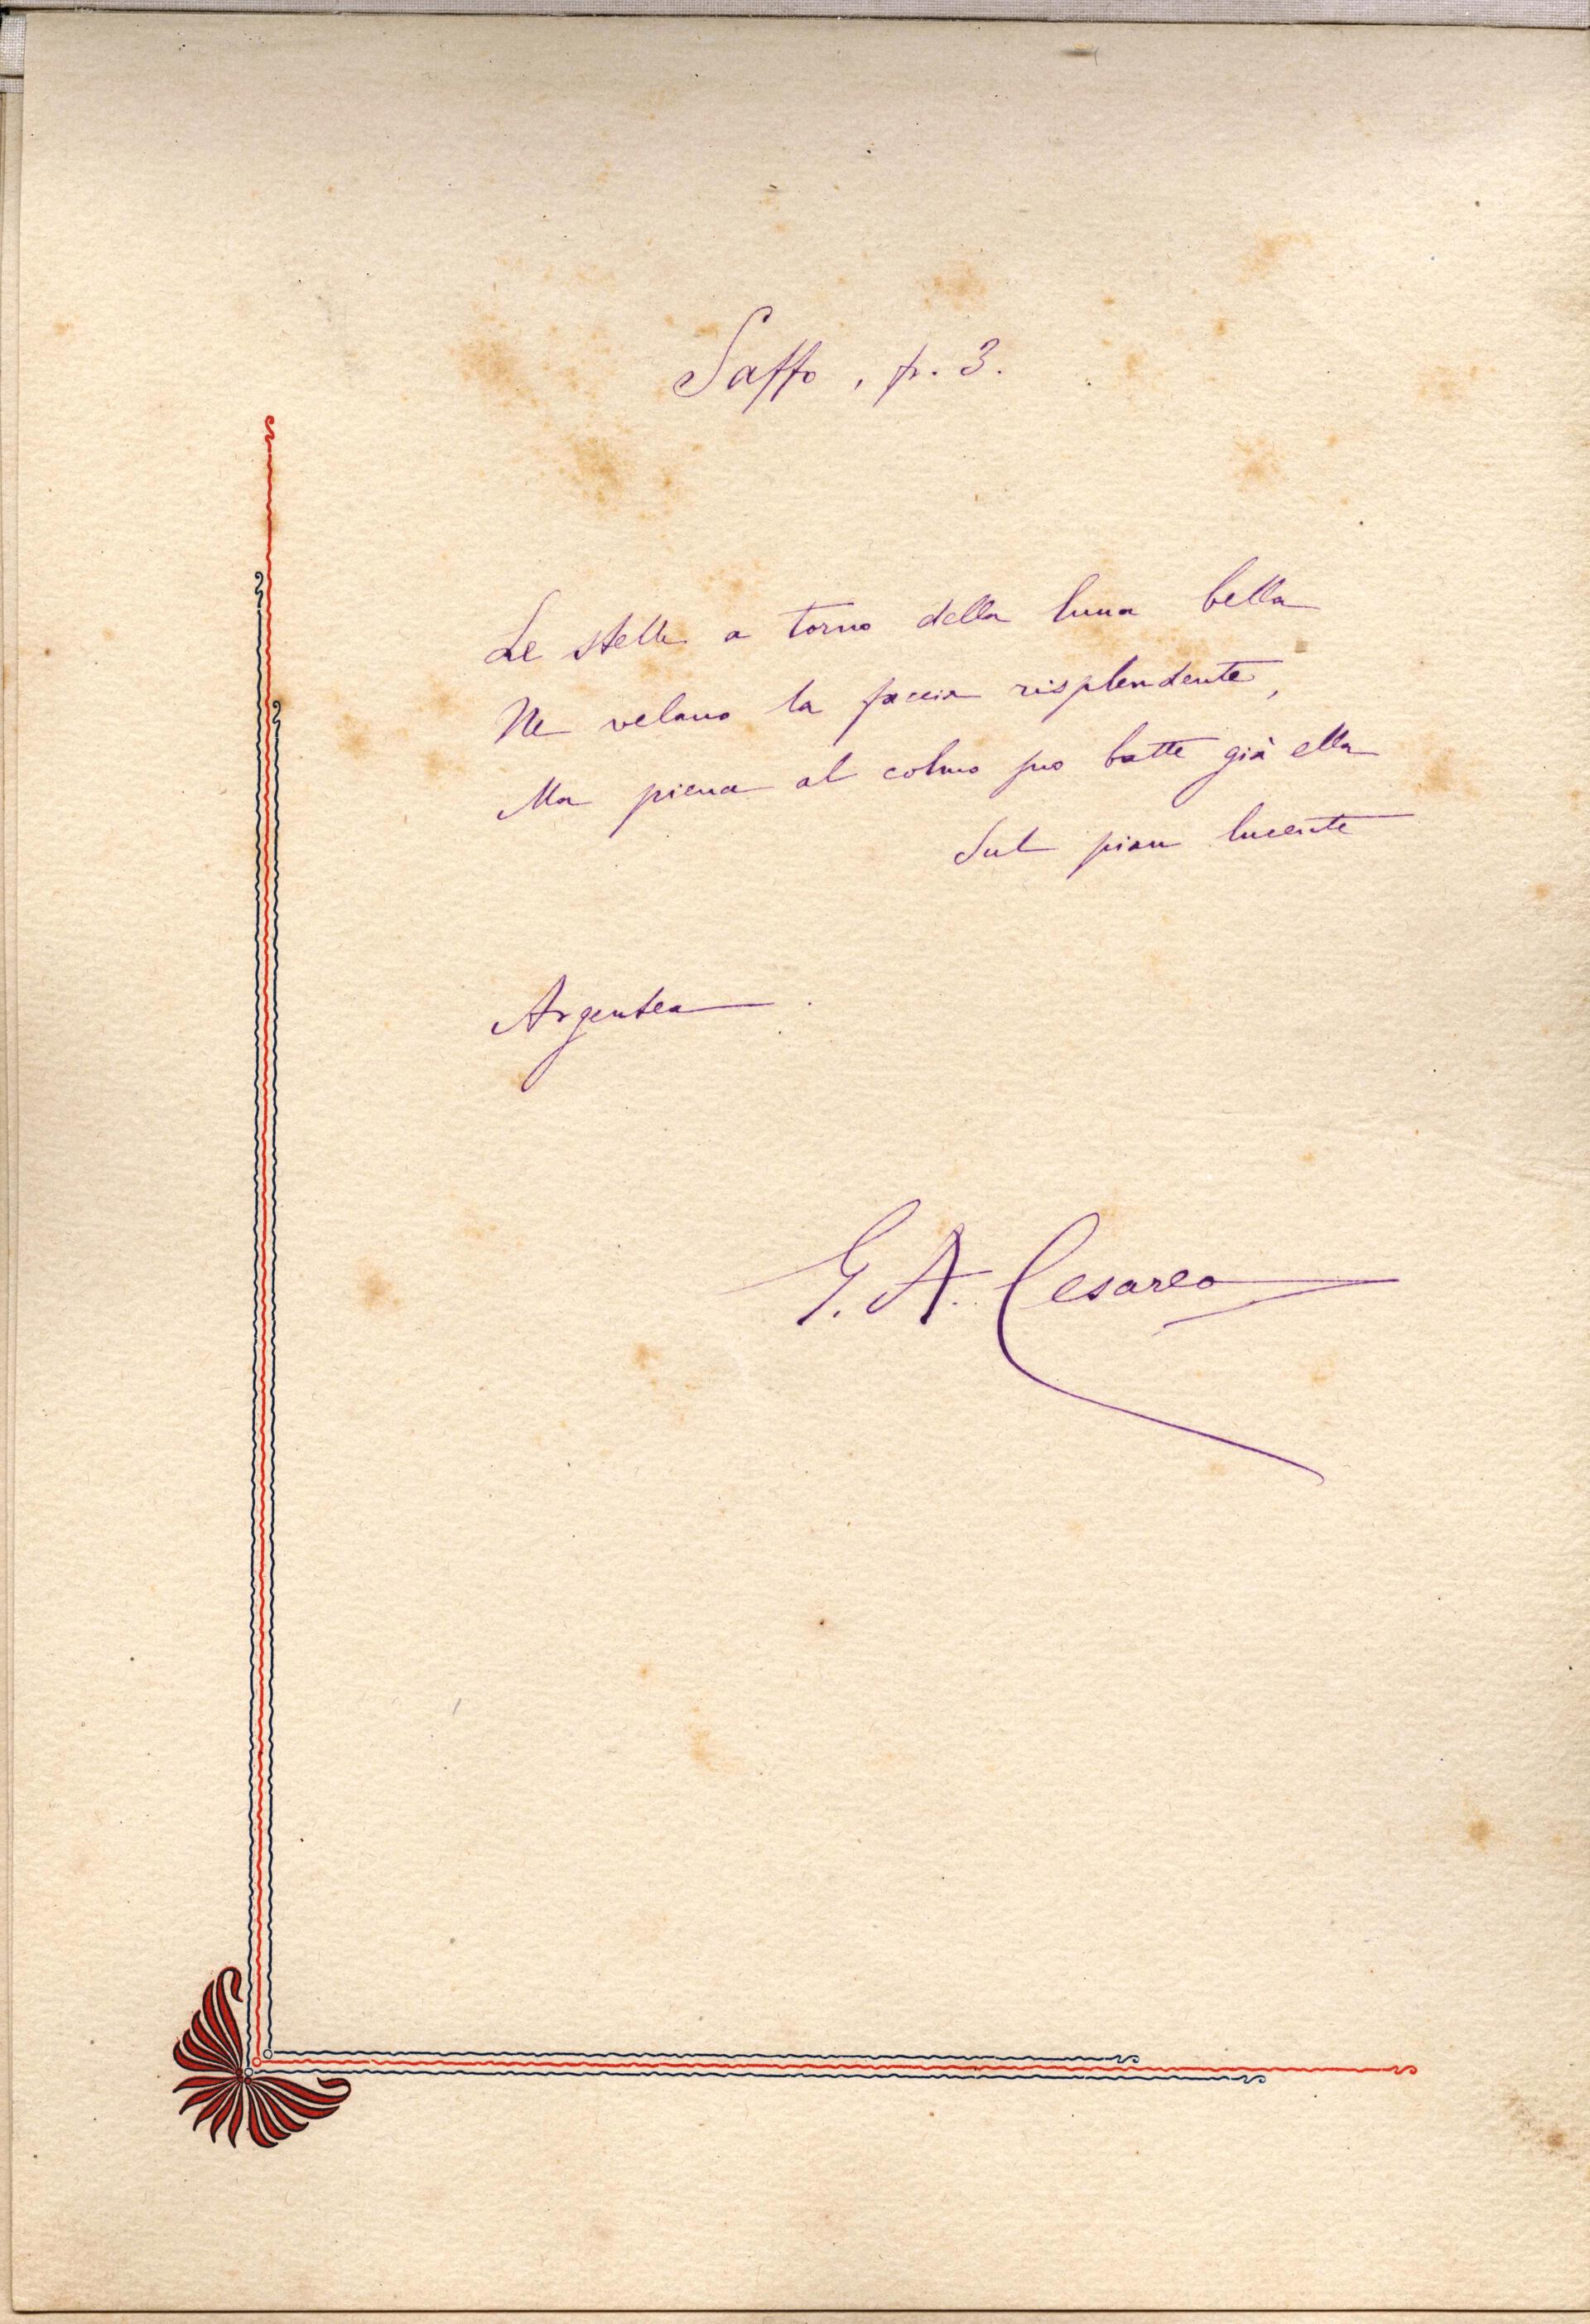 Saffo, fr. 3.
Le stelle a torno della luna bella
Ne velano la faccia risplendente,
Ma piena al colmo suo batte già ella
Sul pian lucente
Argentea.
G. A. Cesareo